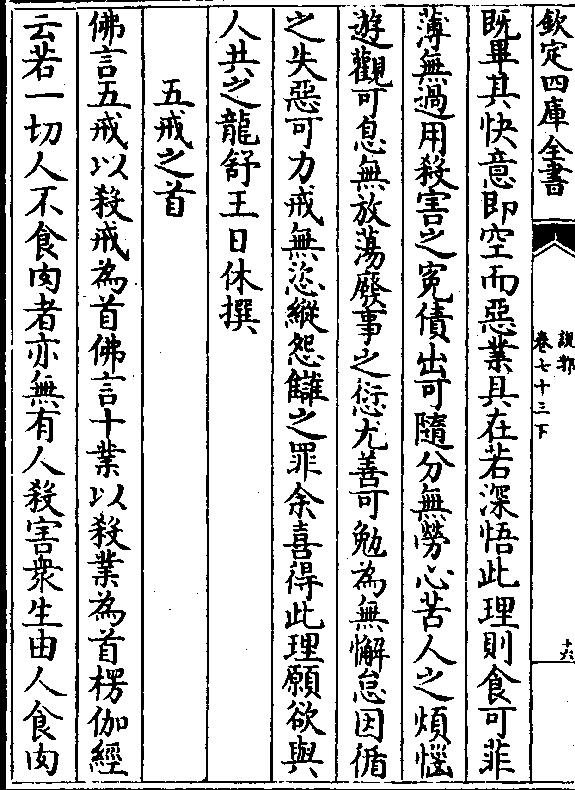 欽定四庫全書
說郛
卷七十三下
十六
既畢其快意即空而惡業具在若深悟此理則食可菲
薄無過用殺害之寃債出可隨分無勞心苦人之煩惱
遊觀可息無放蕩廢事之愆尤善可勉為無懈怠因循
之失惡可力戒無恣縱怨讎之罪余喜得此理願欲與
人共之龍舒王日休撰
五戒之首
佛言五戒以殺戒為首佛言十業以殺業為首楞伽經
云若一切人不食肉者亦無有人殺害衆生由人食肉